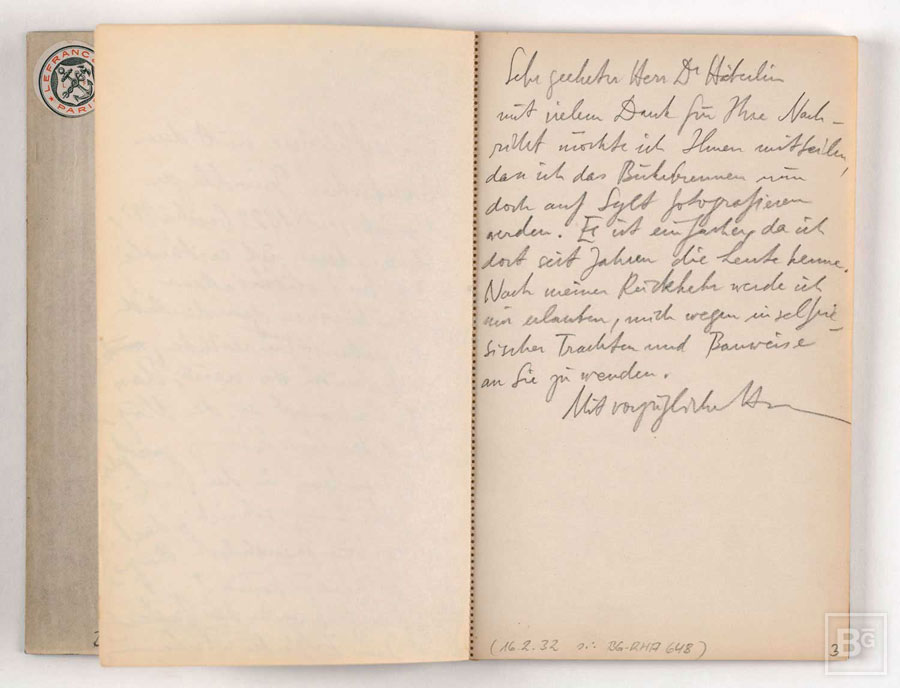 LEFRANC
PARIS
Sehr geehrter Herr Dr Häberlin
mit vielem Dank für Ihre Nach-
richt möchte ich Ihnen mitteilen,
dass ich das Biikebrennen nun
doch auf Sylt fotografieren
werden. Es ist einfacher, da ich
dort seit Jahren die Leute kenne.
Nach meiner Rückkehr werde ich
mir erlauben, mich wegen inselfrie-
sischer Trachten und Bauweise
an Sie zu wenden.
Mit vorzüglicher
(16.2.32 s.: BG-RHA 648)
3
BG